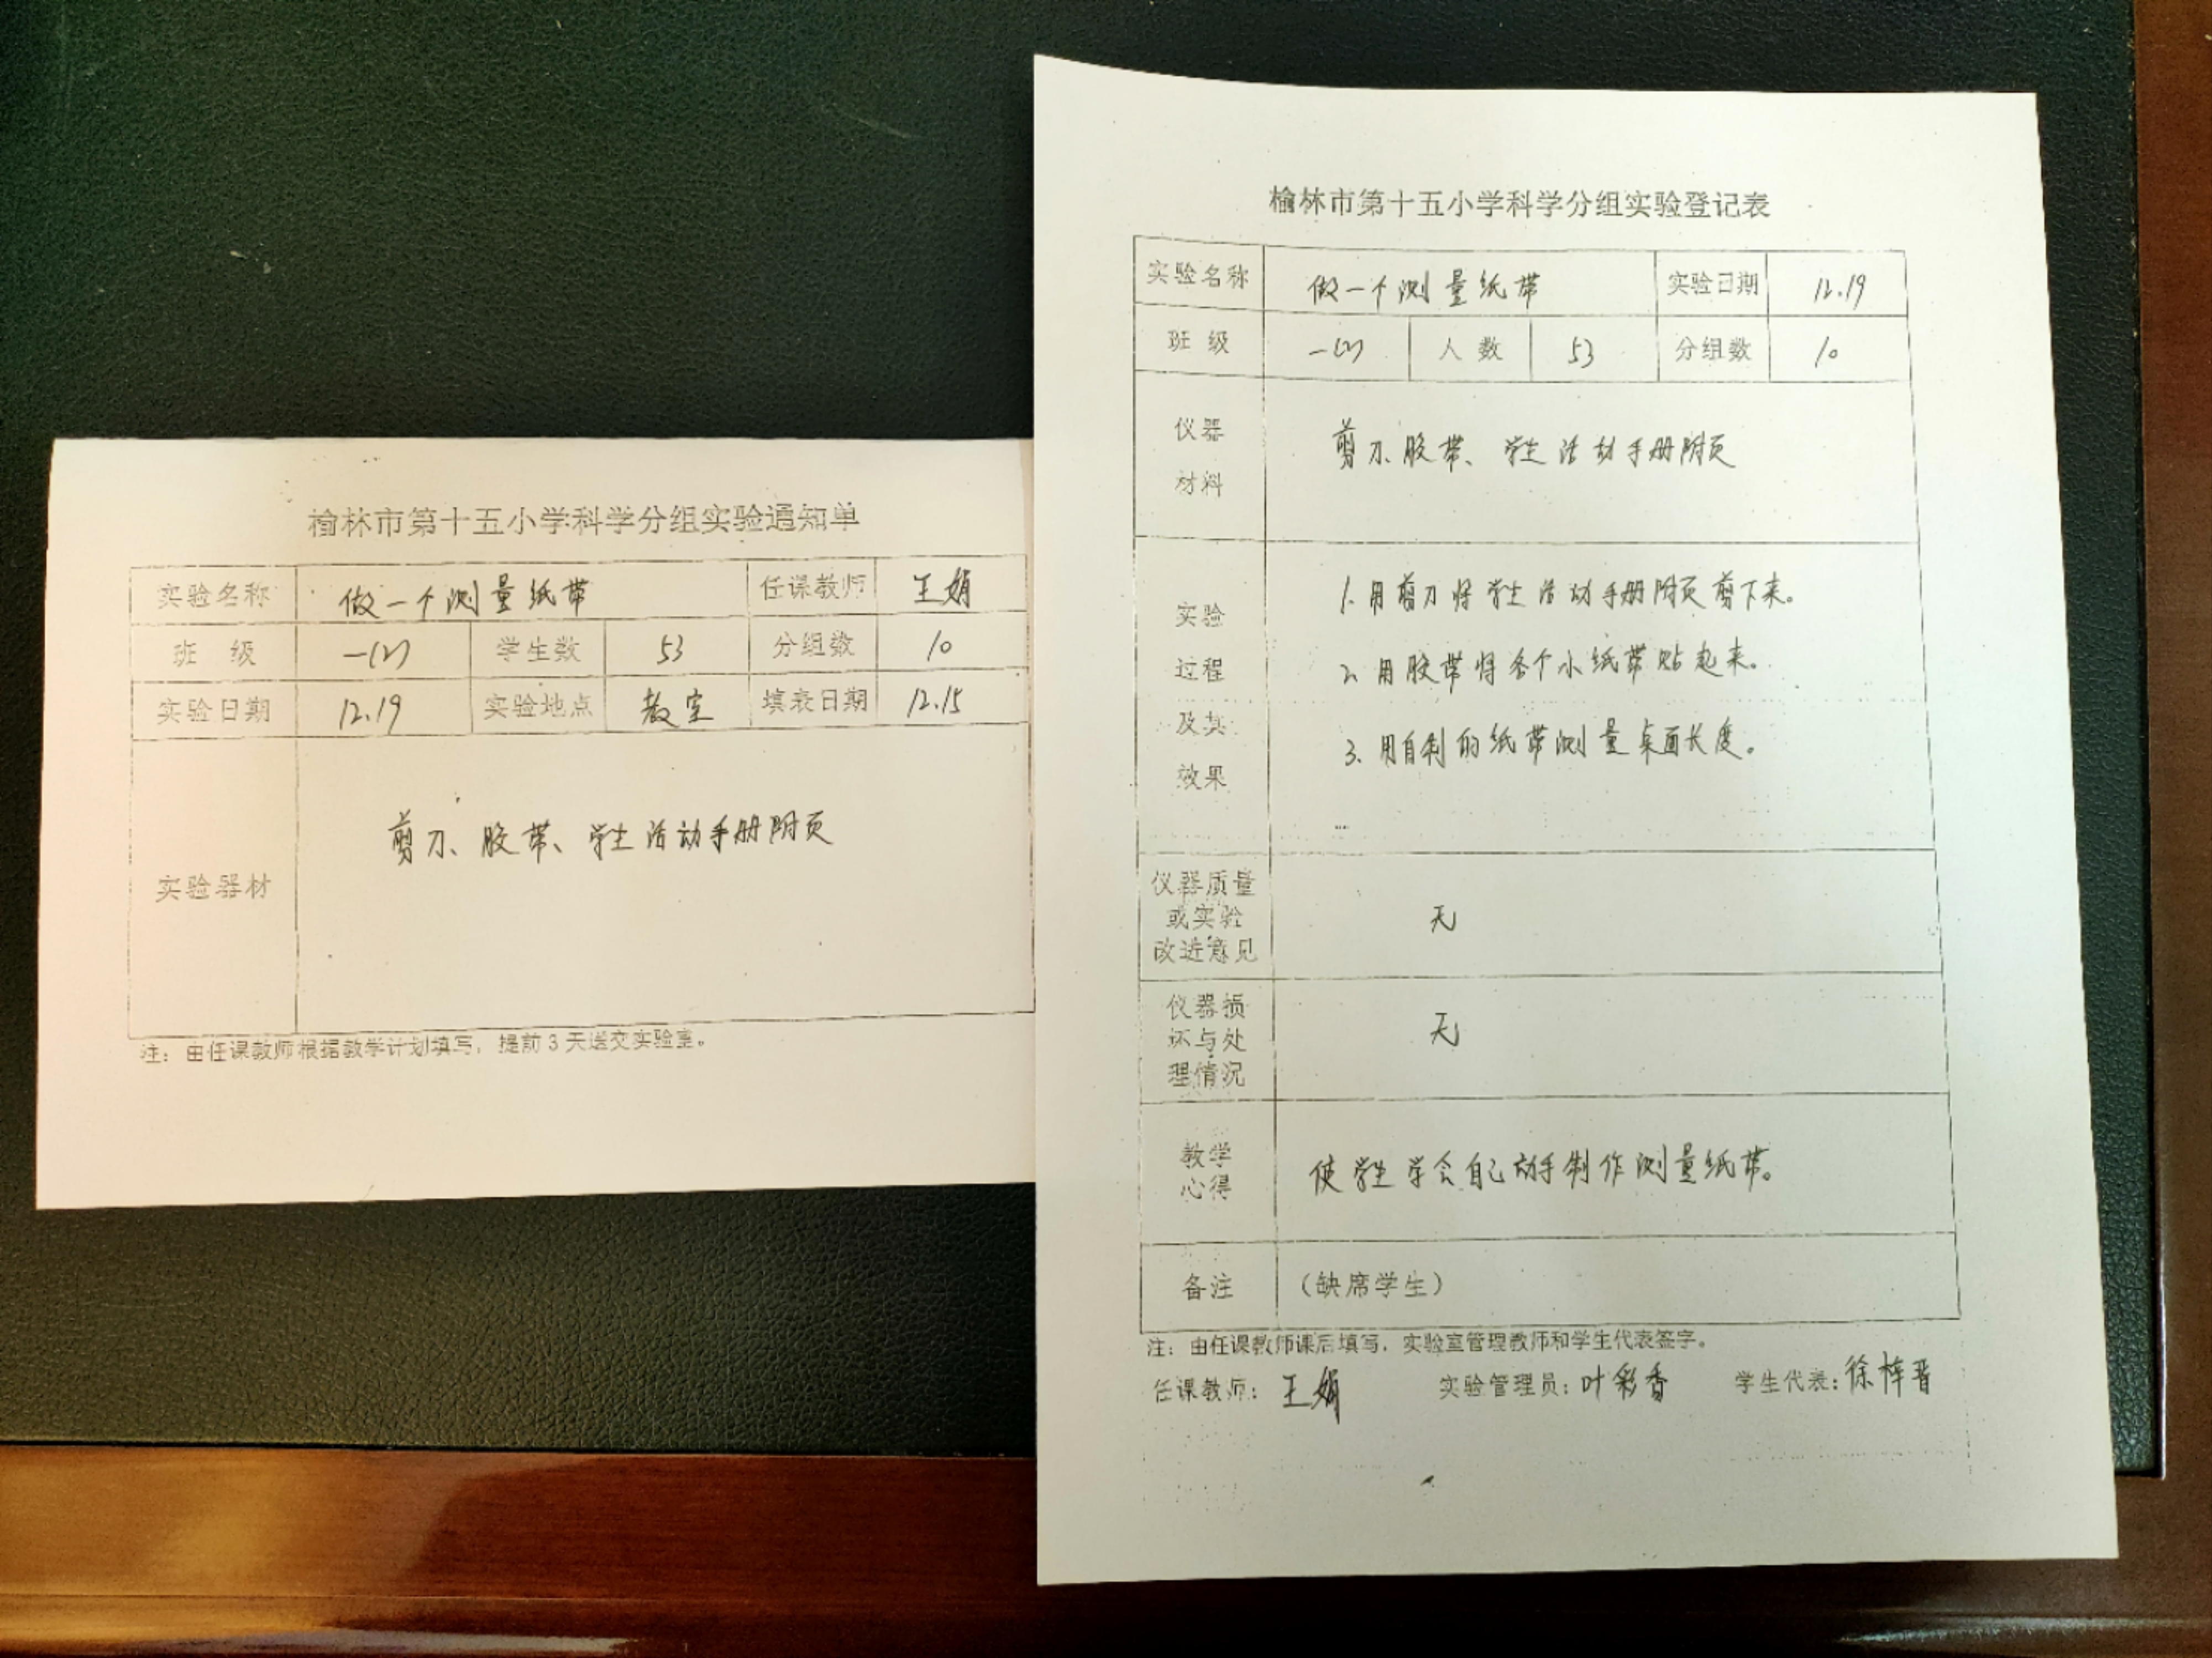 榆林市第十五小学科学分组实验通知单
实验名称 做一个测量纸带 任课教师 王娟
班 级 一(2) 学生数 53 分组数 10
实验日期 12.19 实验地点 教室 填表日期 12.15
实验器材 剪刀、胶带、学生活动手册附页
注：由任课教师根据教学计划填写，提前3天送交实验室。
榆林市第十五小学科学分组实验登记表
实验名称 做一个测量纸带 实验日期 12.19
班 级 一(2) 人 数 53 分组数 10
仪器
材料
剪刀、胶带、学生活动手册附页
实验
过程
及其
效果
1. 用剪刀将学生活动手册附页剪下来。
2. 用胶带将各个小纸带贴起来。
3. 用自制的纸带测量桌面长度。
仪器质量
或实验
改进意见
无
仪器损
坏与处
理情况
无
教学
心得
使学生学会自己动手制作测量纸带。
备注 （缺席学生）
注：由任课教师课后填写，实验室管理教师和学生代表签字。
任课教师：王娟 实验管理员：叶彩香 学生代表：徐梓晋